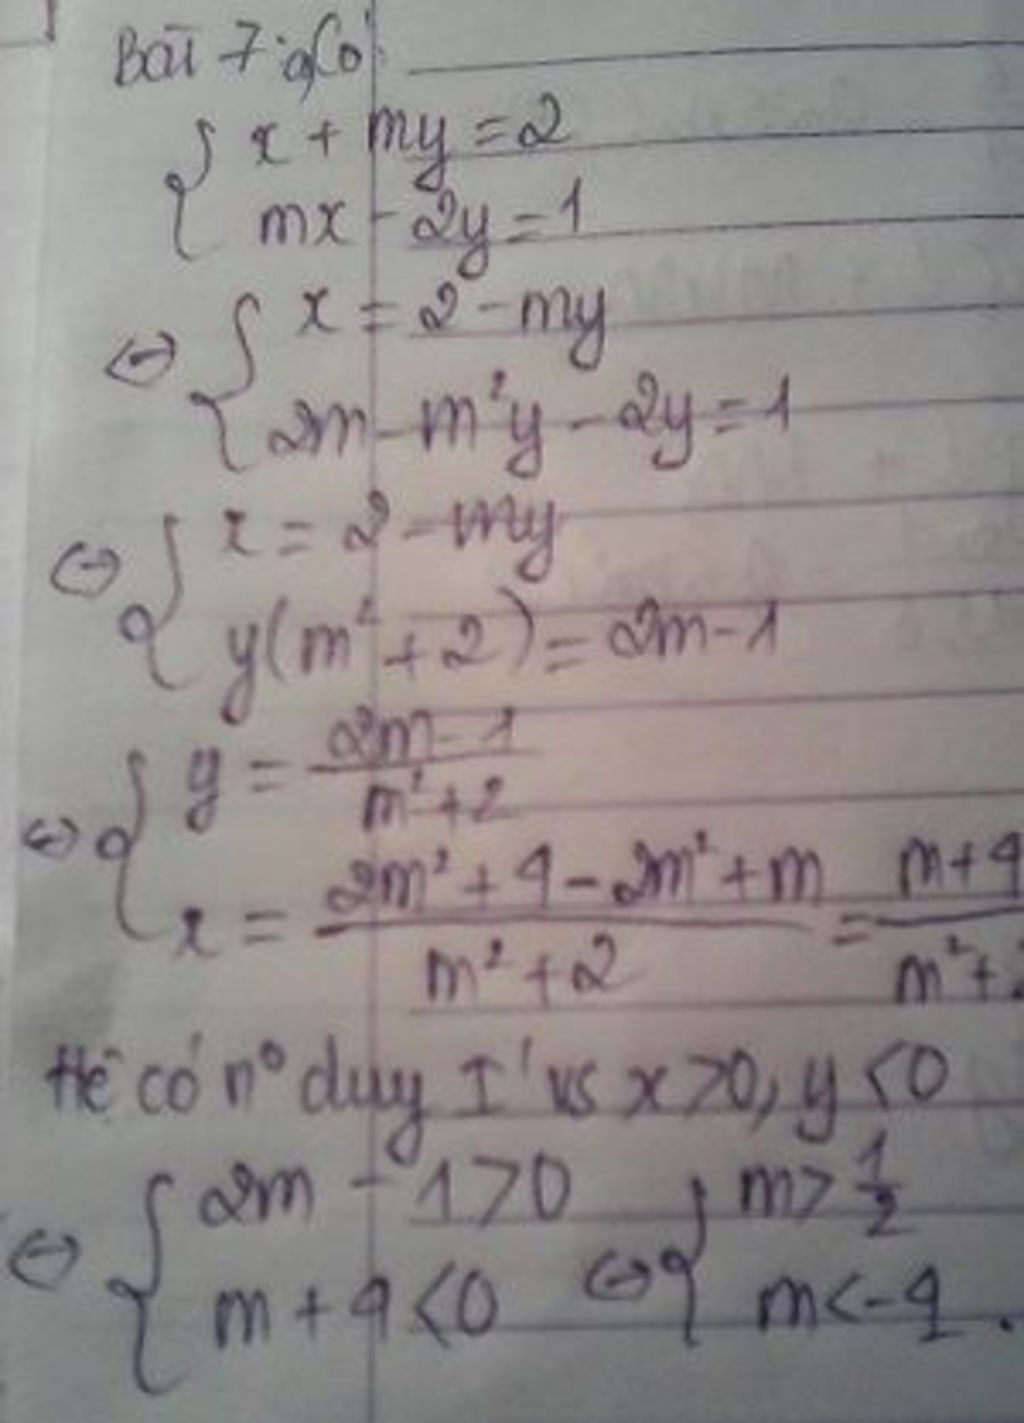 Bài 7: a, Có:
{ x + my = 2
mx - 2y = 1
⇔ { x = 2 - my
2m - m²y - 2y = 1
⇔ { x = 2 - my
y(m² + 2) = 2m - 1
⇔ { y = \frac{2m - 1}{m² + 2}
x = \frac{2m² + 4 - 2m² + m}{m² + 2} = \frac{m + 4}{m² +
Hệ có n° duy I' vs x > 0, y < 0
⇔ { 2m - 1 > 0 ⇔ { m > \frac{1}{2}
m + 4 < 0 m < -4.